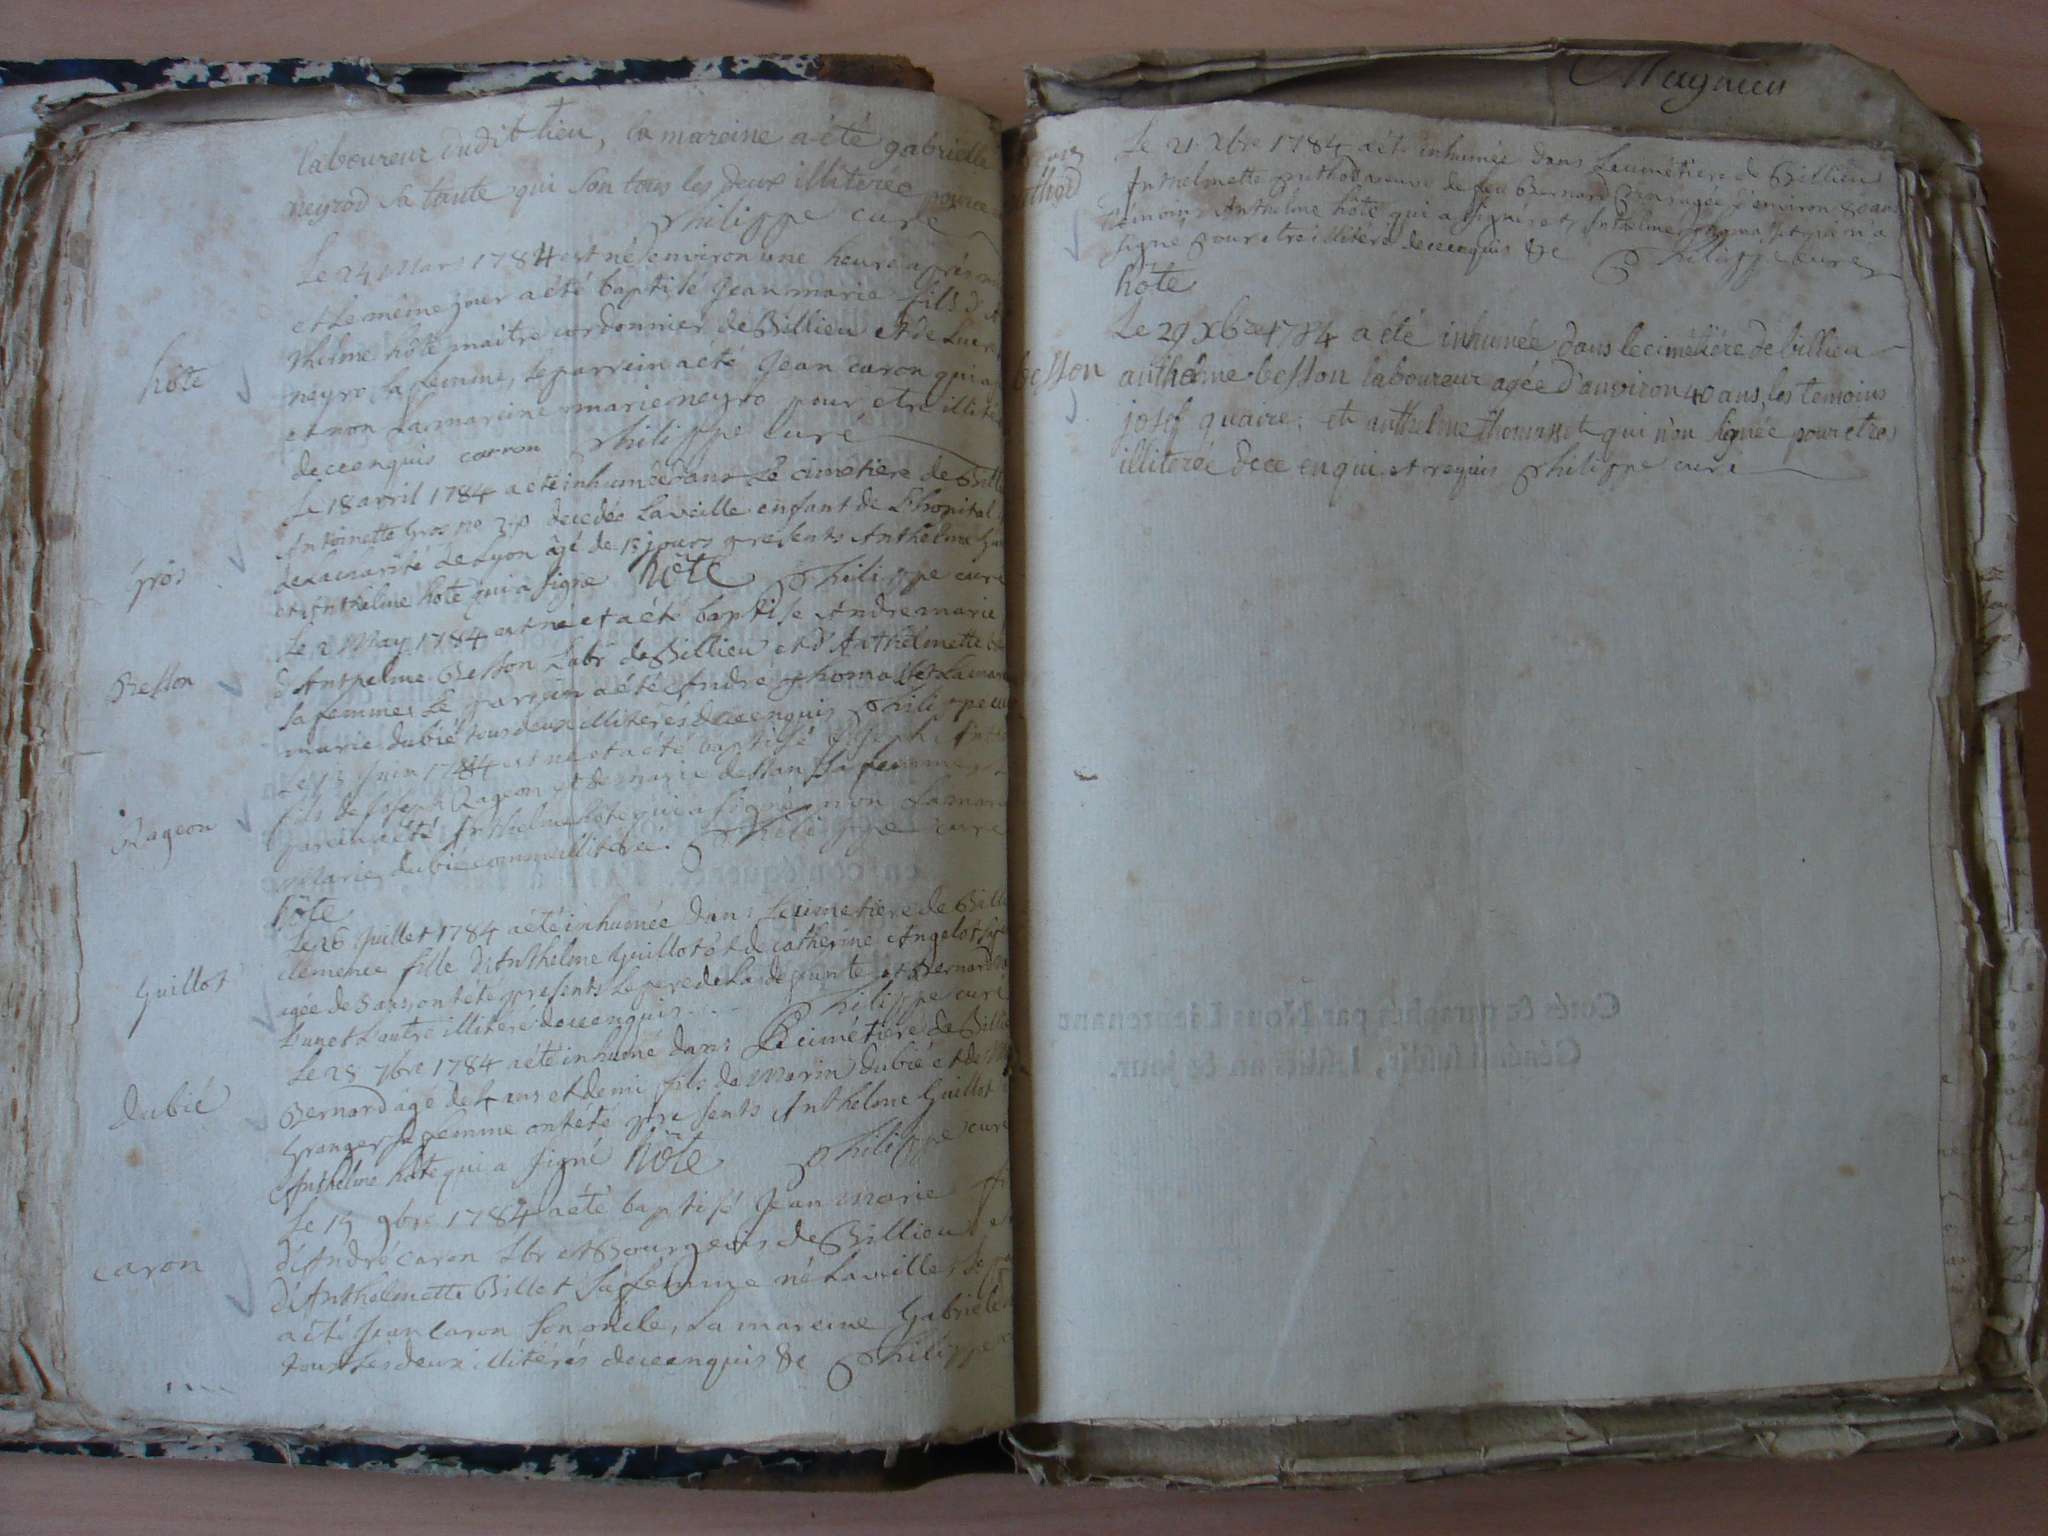 laboureur dudit lieu, la mareine a été gabrielle
neyrod sa tante qui son tous les deux illiterée
Philippe curé
Le 24 Mars 1784 est né environ une heure après
et le même jour a été baptisé Jean marie fils d'
thelme hôte maitre cordonnier de Billieu et de
hôte
neyro sa femme, le parrein a été Jean caron qui
et non la mareine marie neyro pour etre illité
de ce enquis carron Philippe curé
Le 18 avril 1784 a été inhumée dans Le cimetiere de Bill
Antoinette Gros decedée la veille enfant de L'hopital
Gros
de la charité de Lyon âgé de 15 jours presents Anthelme
et Anthelme hôte qui a signé hôte Philippe curé
Le 2 May 1784 est né et a été baptisé André marie
Besson
d'Anthelme Besson Labr de Billieu et d'Anthelmette
sa femme, Le parrein a été André thomasset La mar
marie dubié tous deux illitérés de ce enquis Philippe cu
Le 13 Juin 1784 est né et a été baptisé Joseph
fils de Joseph Rageon et de marie sa femme,
Rageon
parein a été Anthelme hôte qui a signé non La mare
Marie dubié comme illitérée. Philippe curé
hôte
Le 26 Juillet 1784 a été inhumée dans Le cimetiere de Bill
Guillot
clemence fille d'Anthelme Guillot et de catherine Angelot
agée de 3 ans, ont été presents Le pere de La défunte et Bernard
L'un et L'autre illiteré de ce enquis .... Philippe curé
Le 28 7bre 1784 a été inhumé dans Le cimétiére de Billie
dubié
Bernard agé de 4 ans et demi fils de Marin dubié et de
Granger sa femme ont été presents Anthelme Guillot
Anthelme hôte qui a signé hôte Philippe curé
Le 19 9bre 1784 a été baptisé Jean Marie
caron
d'André caron Lbr et Bourgeois de Billieu
d'Anthelmette Billet sa femme né La veille, Le
a été Jean caron son oncle, La mareine Gabriele
tous Les deux illitérés de ce enquis &c Philippe
Magnien
Le 21 Xbre 1784 a été inhumée dans Le cimétiere de Billieu
Anthelmette veuve de feu Bernard agée d'environ 80 ans
témoins Anthelme hôte qui a signé et Anthelme thomasset qui n'a
signé pour etre illitéré de ce enquis &c Philippe curé
hôte
Le 29 Xbre 1784 a été inhumée dans le cimétiére de billieu
besson
anthelme besson laboureur agée d'anviron 40 ans, les temoins
josef quaire, et anthelme thomasset qui n'on signée pour etre
illiterée de ce enqui et requis Philippe curé
Cotés & paraphés par Nous Lieutenant
Général susdit, lesdits an & jour.